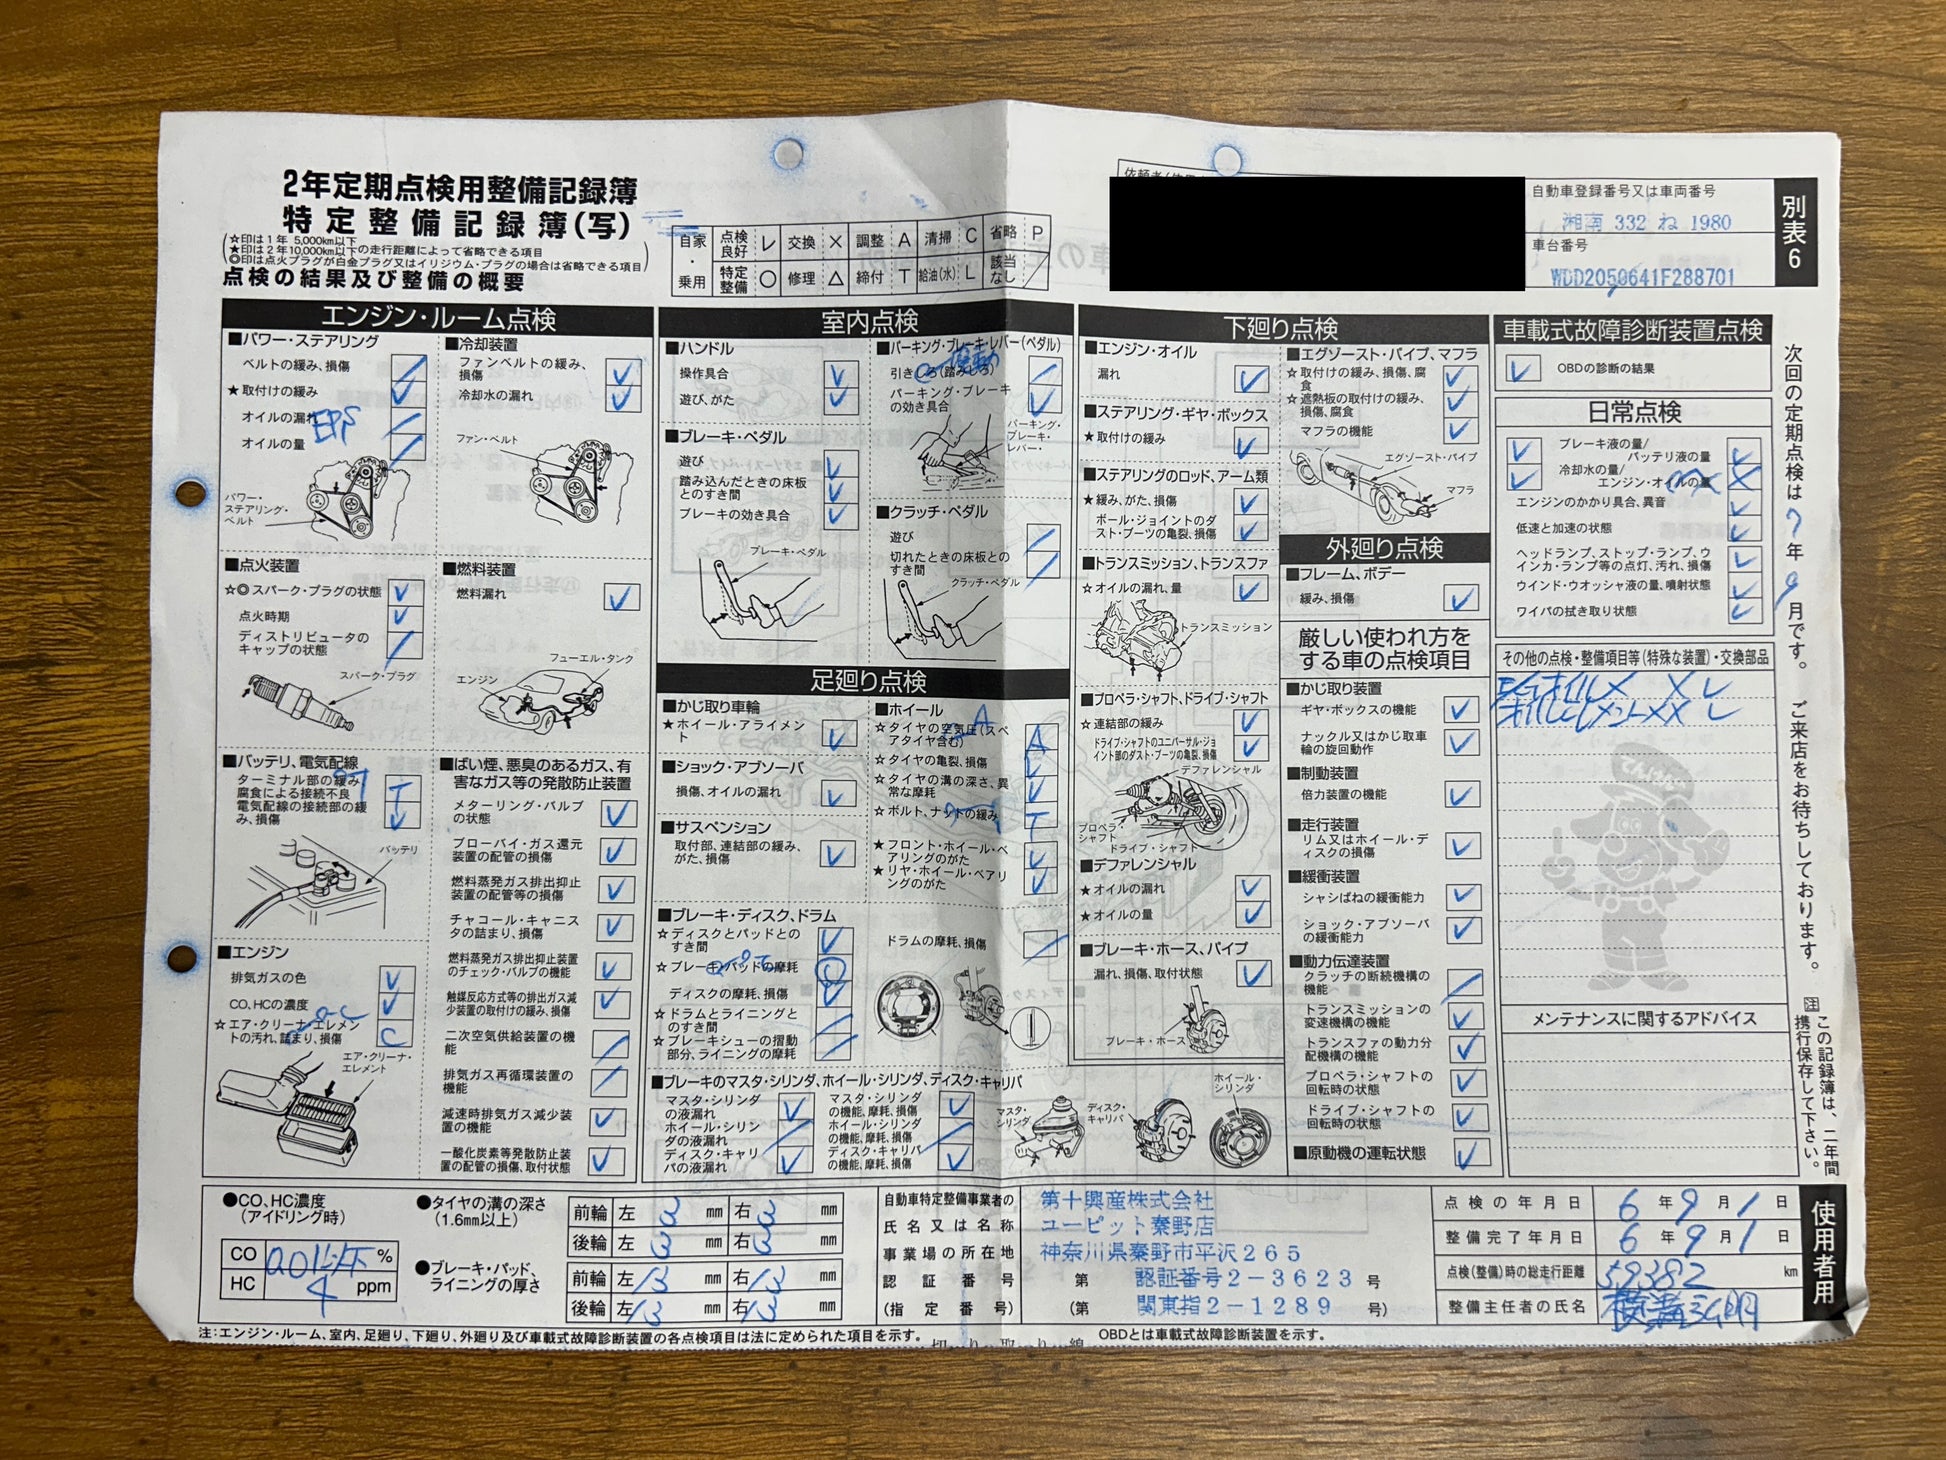 2年定期点検用整備記録簿
特定整備記録簿(写)
☆印は1年 5,000km以下
★印は2年10,000km以下の走行距離によって省略できる項目
◎印は点火プラグが白金プラグ又はイリジウム・プラグの場合は省略できる項目
点検の結果及び整備の概要
自家・乗用
点検良好 レ 交換 × 調整 A 清掃 C 省略 P
特定整備 ○ 修理 △ 締付 T 給油(水) L 該当なし /
自動車登録番号又は車両番号
湘南 332 ね 1980
車台番号
WDD2050641F288701
別表6
エンジン・ルーム点検
■パワー・ステアリング
ベルトの緩み、損傷
★取付けの緩み
オイルの漏れ
EPS
オイルの量
パワー・ステアリング・ベルト
■冷却装置
ファンベルトの緩み、損傷
冷却水の漏れ
ファン・ベルト
■点火装置
☆◎スパーク・プラグの状態
点火時期
ディストリビュータのキャップの状態
スパーク・プラグ
■燃料装置
燃料漏れ
フューエル・タンク
エンジン
■バッテリ、電気配線
ターミナル部の緩み、腐食による接続不良 T
電気配線の接続部の緩み、損傷
バッテリ
■エンジン
排気ガスの色
CO、HCの濃度
☆エア・クリーナ・エレメントの汚れ、詰まり、損傷 C
エア・クリーナ・エレメント
■ばい煙、悪臭のあるガス、有害なガス等の発散防止装置
メターリング・バルブの状態
ブローバイ・ガス還元装置の配管の損傷
燃料蒸発ガス排出抑止装置の配管等の損傷
チャコール・キャニスタの詰まり、損傷
燃料蒸発ガス排出抑止装置のチェック・バルブの機能
触媒反応方式等の排出ガス減少装置の取付けの緩み、損傷
二次空気供給装置の機能
排気ガス再循環装置の機能
減速時排気ガス減少装置の機能
一酸化炭素等発散防止装置の配管の損傷、取付状態
室内点検
■ハンドル
操作具合
遊び、がた
■ブレーキ・ペダル
遊び
踏み込んだときの床板とのすき間
ブレーキの効き具合
ブレーキ・ペダル
■パーキング・ブレーキ・レバー(ペダル)
引きしろ(踏みしろ)
パーキング・ブレーキの効き具合
パーキング・ブレーキ・レバー・
■クラッチ・ペダル
遊び
切れたときの床板とのすき間
クラッチ・ペダル
足廻り点検
■かじ取り車輪
★ホイール・アライメント
■ショック・アブソーバ
損傷、オイルの漏れ
■サスペンション
取付部、連結部の緩み、がた、損傷
■ホイール
☆タイヤの空気圧(スペアタイヤ含む) A
☆タイヤの亀裂、損傷
☆タイヤの溝の深さ、異常な摩耗
☆ボルト、ナットの緩み T
★フロント・ホイール・ベアリングのがた
★リヤ・ホイール・ベアリングのがた
■ブレーキ・ディスク、ドラム
☆ディスクとパッドとのすき間
☆ブレーキ・パッドの摩耗
ディスクの摩耗、損傷
☆ドラムとライニングとのすき間
☆ブレーキシューの摺動部分、ライニングの摩耗
ドラムの摩耗、損傷
■ブレーキのマスタ・シリンダ、ホイール・シリンダ、ディスク・キャリパ
マスタ・シリンダの液漏れ
ホイール・シリンダの液漏れ
ディスク・キャリパの液漏れ
マスタ・シリンダの機能、摩耗、損傷
ホイール・シリンダの機能、摩耗、損傷
ディスク・キャリパの機能、摩耗、損傷
マスタ・シリンダ
ディスク・キャリパ
ホイール・シリンダ
下廻り点検
■エンジン・オイル
漏れ
■ステアリング・ギヤ・ボックス
★取付けの緩み
■ステアリングのロッド、アーム類
★緩み、がた、損傷
ボール・ジョイントのダスト・ブーツの亀裂、損傷
■トランスミッション、トランスファ
☆オイルの漏れ、量
トランスミッション
■プロペラ・シャフト、ドライブ・シャフト
☆連結部の緩み
ドライブ・シャフトのユニバーサル・ジョイント部のダスト・ブーツの亀裂、損傷
デファレンシャル
プロペラ・シャフト
ドライブ・シャフト
■デファレンシャル
★オイルの漏れ
★オイルの量
■ブレーキ・ホース、パイプ
漏れ、損傷、取付状態
ブレーキ・ホース
■エグゾースト・パイプ、マフラ
☆取付けの緩み、損傷、腐食
☆遮熱板の取付けの緩み、損傷、腐食
マフラの機能
エグゾースト・パイプ
マフラ
外廻り点検
■フレーム、ボデー
緩み、損傷
厳しい使われ方をする車の点検項目
■かじ取り装置
ギヤ・ボックスの機能
ナックル又はかじ取車輪の旋回動作
■制動装置
倍力装置の機能
■走行装置
リム又はホイール・ディスクの損傷
■緩衝装置
シャシばねの緩衝能力
ショック・アブソーバの緩衝能力
■動力伝達装置
クラッチの断続機構の機能
トランスミッションの変速機構の機能
トランスファの動力分配機構の機能
プロペラ・シャフトの回転時の状態
ドライブ・シャフトの回転時の状態
■原動機の運転状態
車載式故障診断装置点検
OBDの診断の結果
日常点検
ブレーキ液の量/バッテリ液の量
冷却水の量/エンジン・オイルの量
エンジンのかかり具合、異音
低速と加速の状態
ヘッドランプ、ストップ・ランプ、ウインカ・ランプ等の点灯、汚れ、損傷
ウインド・ウオッシャ液の量、噴射状態
ワイパの拭き取り状態
その他の点検・整備項目等(特殊な装置)・交換部品
メンテナンスに関するアドバイス
次回の定期点検は 7 年 9 月です。ご来店をお待ちしております。
注 この記録簿は、二年間携行保存して下さい。
使用者用
●CO、HC濃度(アイドリング時)
CO 0.01以下 %
HC 4 ppm
●タイヤの溝の深さ(1.6mm以上)
前輪 左 mm 右 mm
後輪 左 mm 右 mm
●ブレーキ・パッド、ライニングの厚さ
前輪 左 mm 右 mm
後輪 左 mm 右 mm
自動車特定整備事業者の氏名又は名称
第十興産株式会社
ユーピット秦野店
事業場の所在地 神奈川県秦野市平沢265
認証番号 第 認証番号2-3623 号
(指定番号) (第 関東指2-1289 号)
点検の年月日 6 年 9 月 1 日
整備完了年月日 6 年 9 月 1 日
点検(整備)時の総走行距離 59382 km
整備主任者の氏名
注:エンジン・ルーム、室内、足廻り、下廻り、外廻り及び車載式故障診断装置の各点検項目は法に定められた項目を示す。
OBDとは車載式故障診断装置を示す。